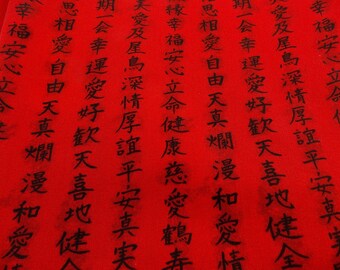 幸福安心立命健康慈愛鶴寿
愛及星鳥深情厚誼平安真実
期一会幸運愛好歓天喜地健全
思相愛自由天真爛漫和愛情
縁幸福安心立命健康慈愛鶴寿
愛及星鳥深情厚誼平安真実
期一会幸運愛好歓天喜地健全
思相愛自由天真爛漫和愛情
幸福安心立命